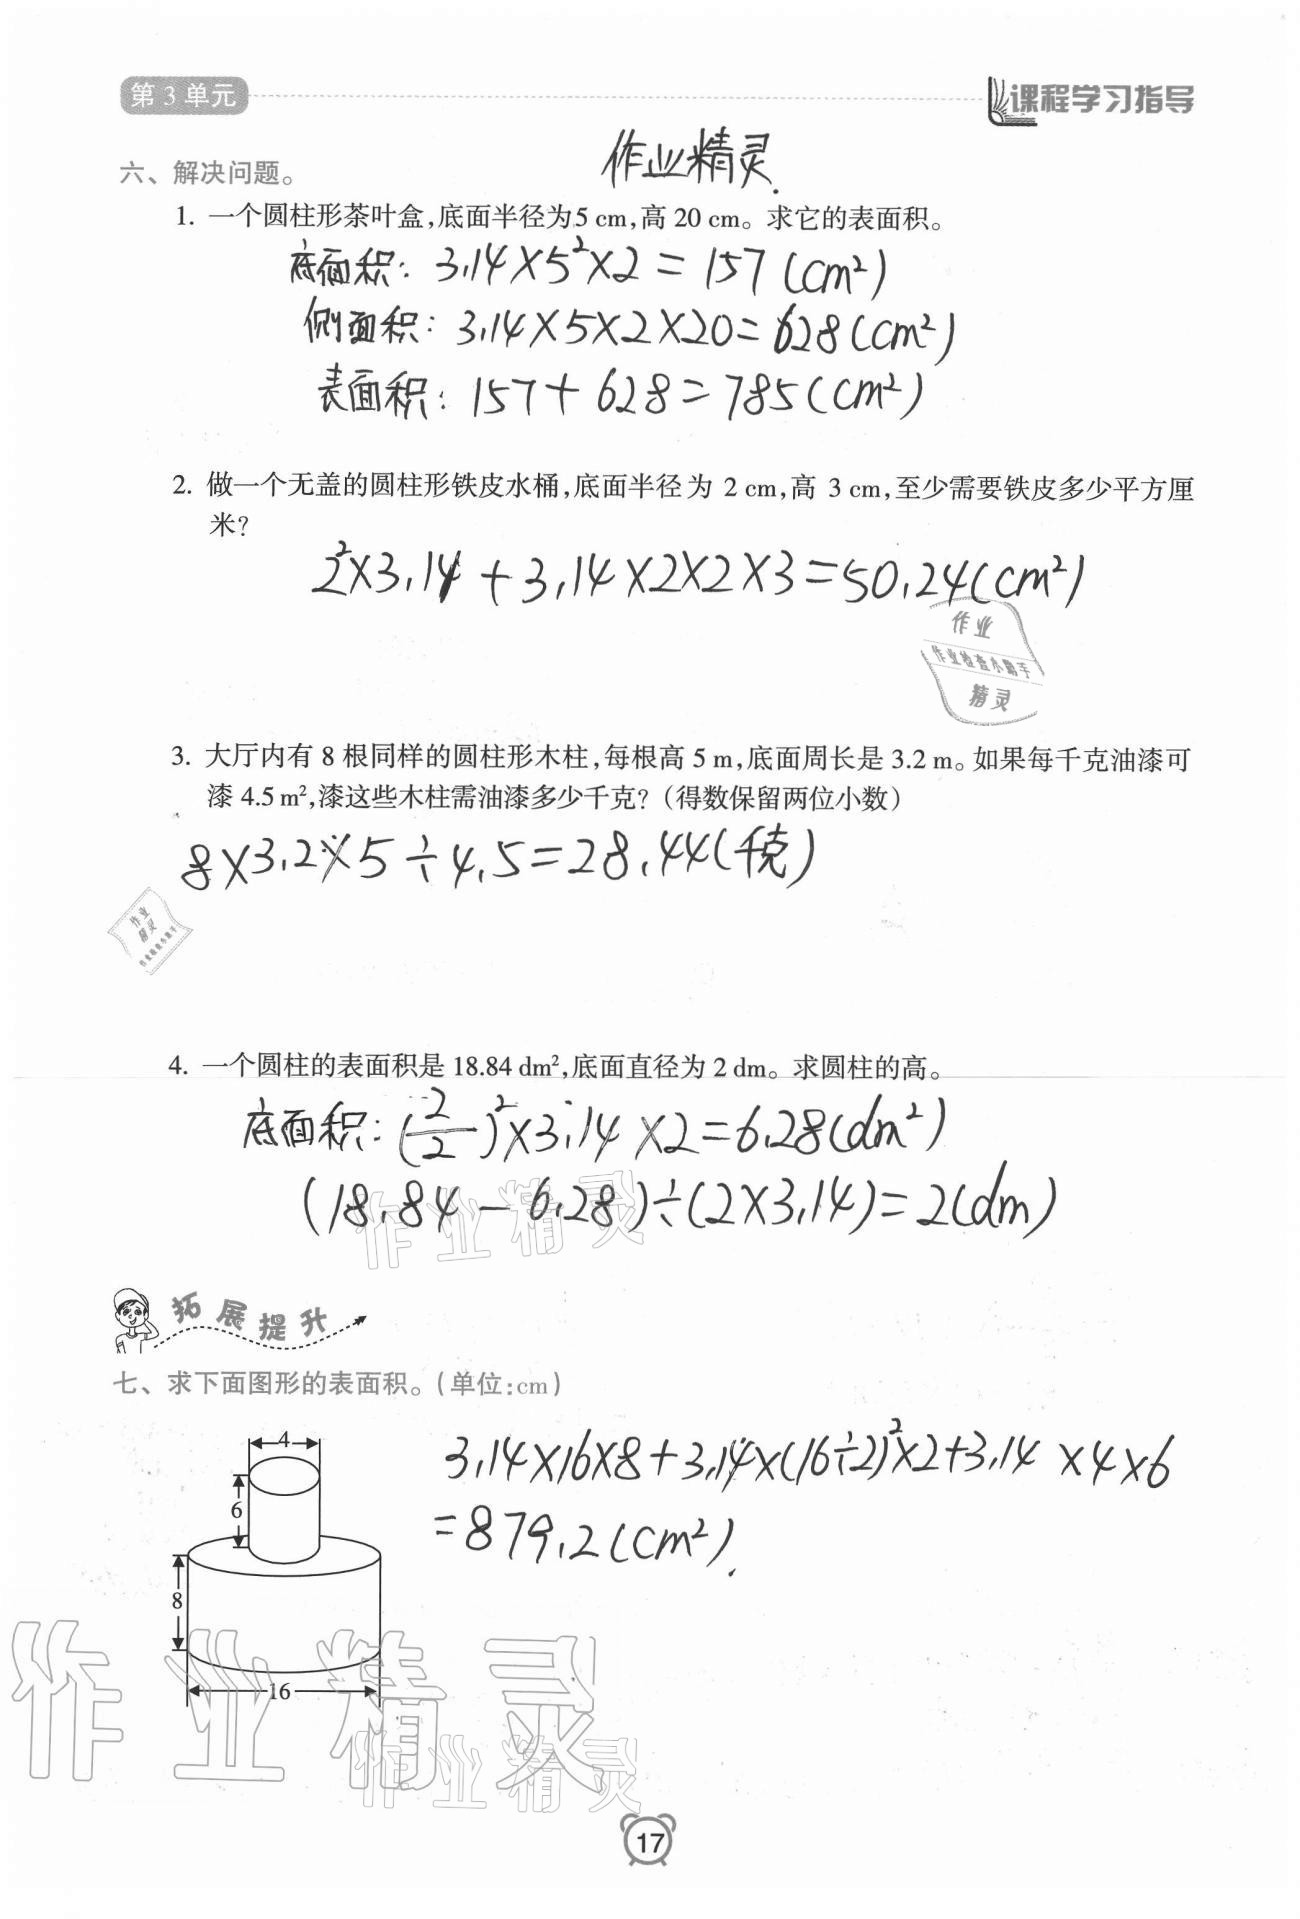 第3单元
课程学习指导
作业精灵
六、解决问题。
1. 一个圆柱形茶叶盒,底面半径为5 cm,高 20 cm。求它的表面积。
底面积: 3.14×5²×2=157(cm²)
侧面积: 3.14×5×2×20=628(cm²)
表面积: 157+628=785(cm²)
2. 做一个无盖的圆柱形铁皮水桶,底面半径为 2 cm,高 3 cm,至少需要铁皮多少平方厘
米?
2²×3.14+3.14×2×2×3=50.24(cm²)
作业
作业检查小助手
精灵
3. 大厅内有 8 根同样的圆柱形木柱,每根高 5 m,底面周长是 3.2 m。如果每千克油漆可
漆 4.5 m²,漆这些木柱需油漆多少千克?(得数保留两位小数)
8×3.2×5÷4.5=28.44(千克)
作业
精灵
作业检查小助手
4. 一个圆柱的表面积是 18.84 dm²,底面直径为 2 dm。求圆柱的高。
底面积: (2/2)²×3.14×2=6.28(dm²)
(18.84-6.28)÷(2×3.14)=2(dm)
作业精灵
拓展提升
七、求下面图形的表面积。(单位:cm)
3.14×16×8+3.14×(16÷2)²×2+3.14×4×6
=879.2(cm²).
4
6
8
16
作业精灵
作业精灵
17